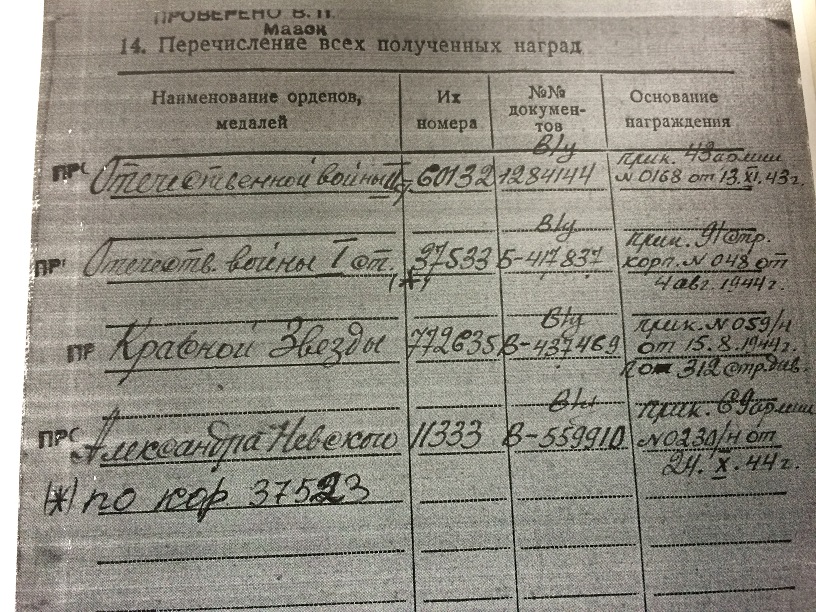 ПРОВЕРЕНО В. П.
Мазок
14. Перечисление всех полученных наград
Наименование орденов, медалей
Их номера
№№ докумен-тов
Основание награждения
ПРО Отечественной войны II 60132 В/у 1284144 прик. 43 армии
N 0168 от 13.XI.43г.
ПР Отечеств. войны I ст. 37533 В/у Б-417837 прик. 91 стр.
(*) корп. N 048 от
4 авг. 1944г.
ПР Красной Звезды 772635 В/у В-437469 прик. N 059/н
от 15.8.1944г.
по 312 стр. див.
ПРО Александра Невского 11333 В/у В-559910 прик. 69 армии
N 0230/н от
24. X. 44г.
(*) по кор. 37523